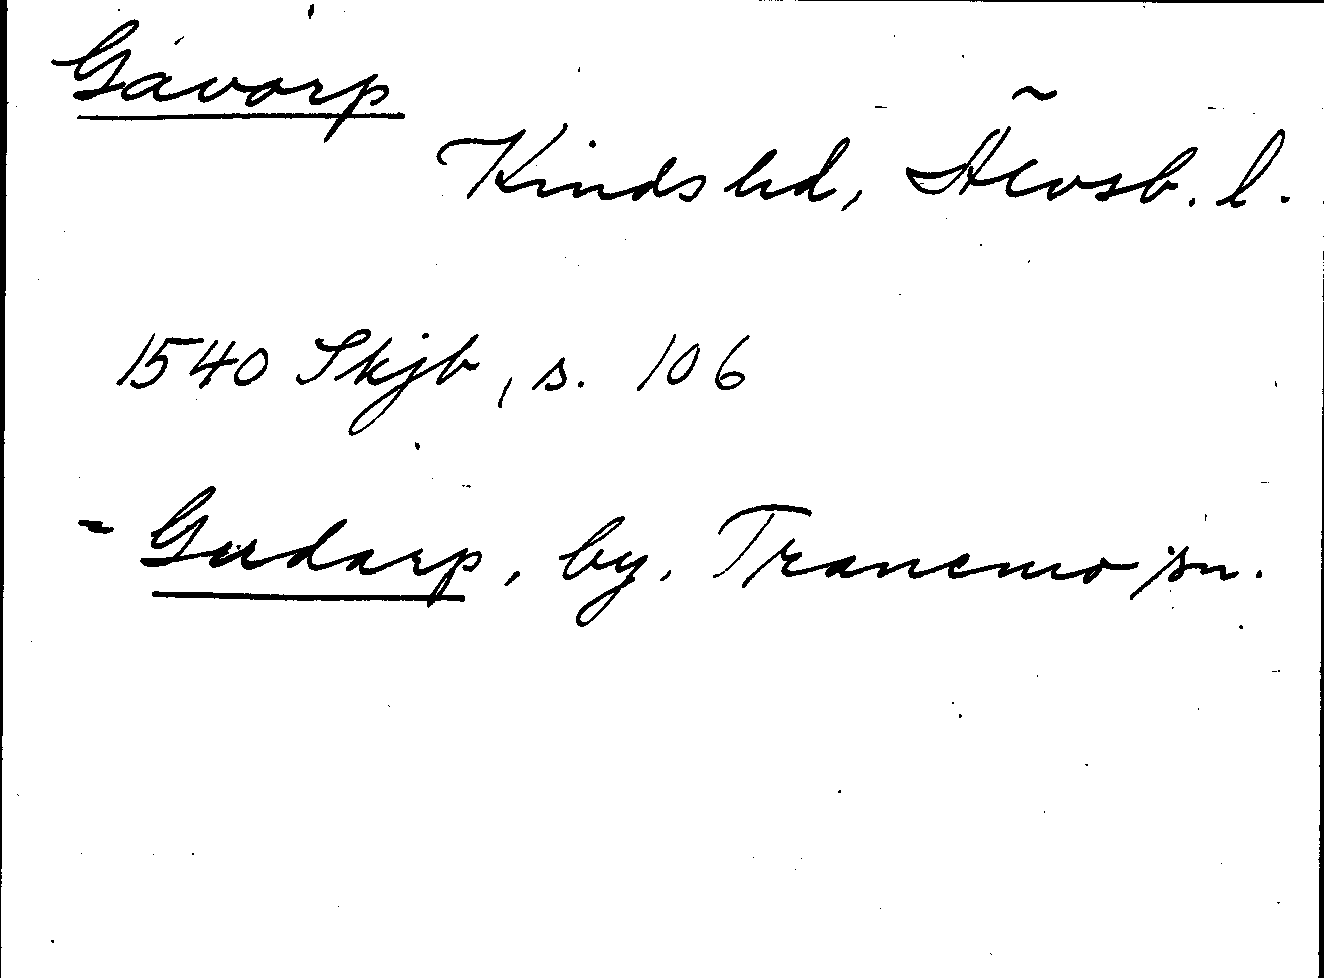 Gavorp
Kinds hd, Älvsb. l.
1540 Skjb, s. 106
= Gudarp, by, Tranemo sn.